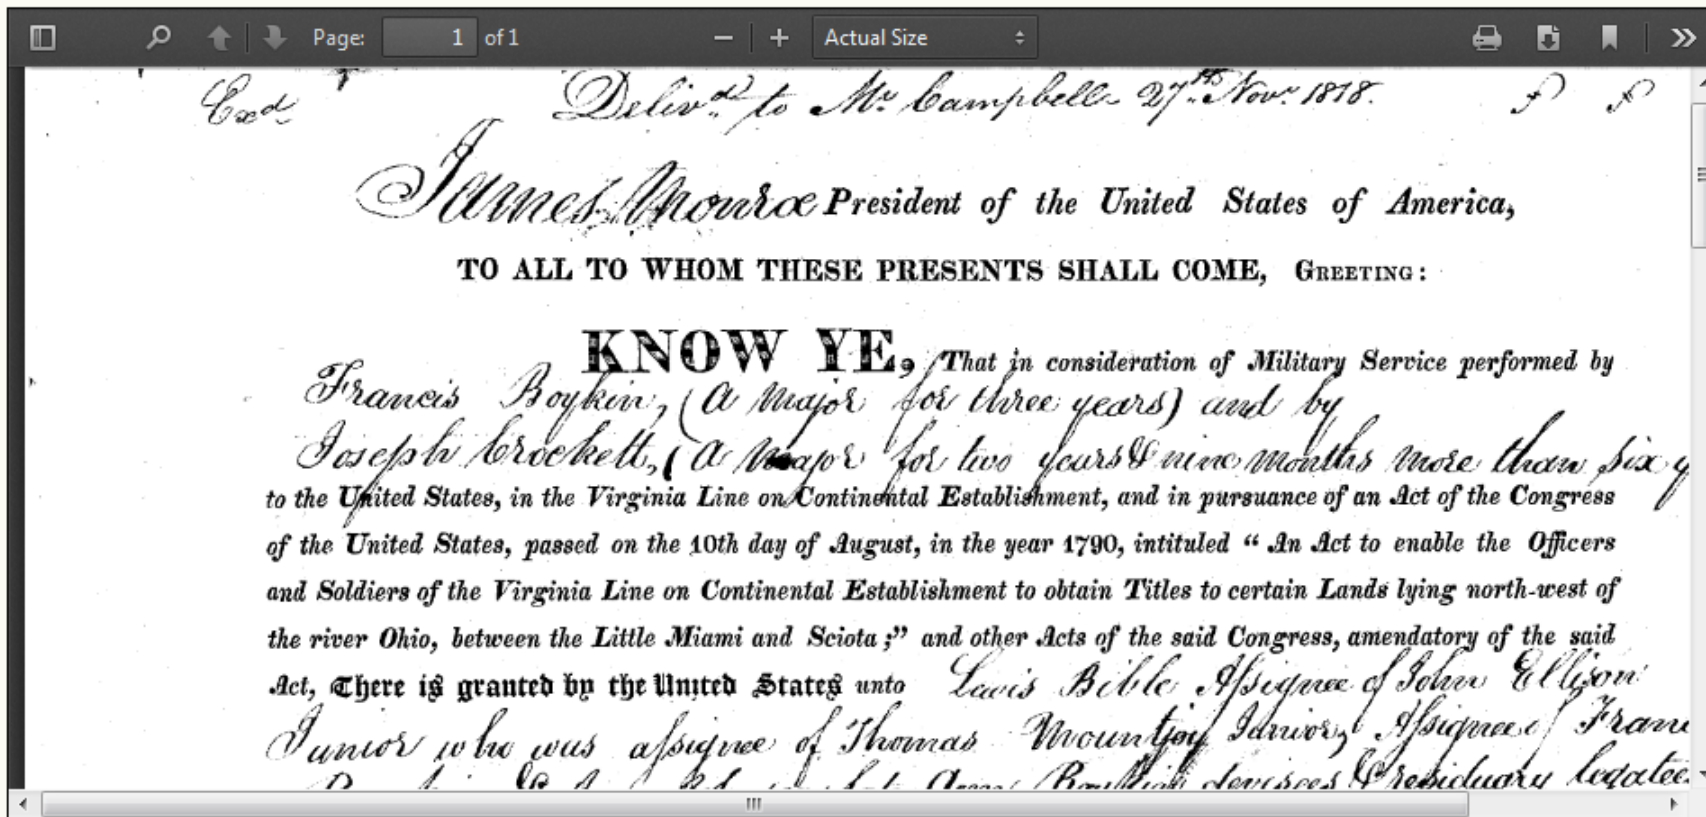 Page: 1 of 1 Actual Size
Exd Delivd to Mr Campbell 27th Novr 1818.
James Monroe President of the United States of America,
TO ALL TO WHOM THESE PRESENTS SHALL COME, GREETING:
KNOW YE, That in consideration of Military Service performed by
Francis Boykin, (a Major for three years) and by
Joseph Crockett, (a Major for two years & nine months more than six y
to the United States, in the Virginia Line on Continental Establishment, and in pursuance of an Act of the Congress
of the United States, passed on the 10th day of August, in the year 1790, intituled “ An Act to enable the Officers
and Soldiers of the Virginia Line on Continental Establishment to obtain Titles to certain Lands lying north-west of
the river Ohio, between the Little Miami and Sciota ;” and other Acts of the said Congress, amendatory of the said
Act, There is granted by the United States unto Lewis Bible Assignee of John Ellison
Junior who was assignee of Thomas Mountjoy Junior, Assignee of Fran
Boykin devisees & residuary legatee